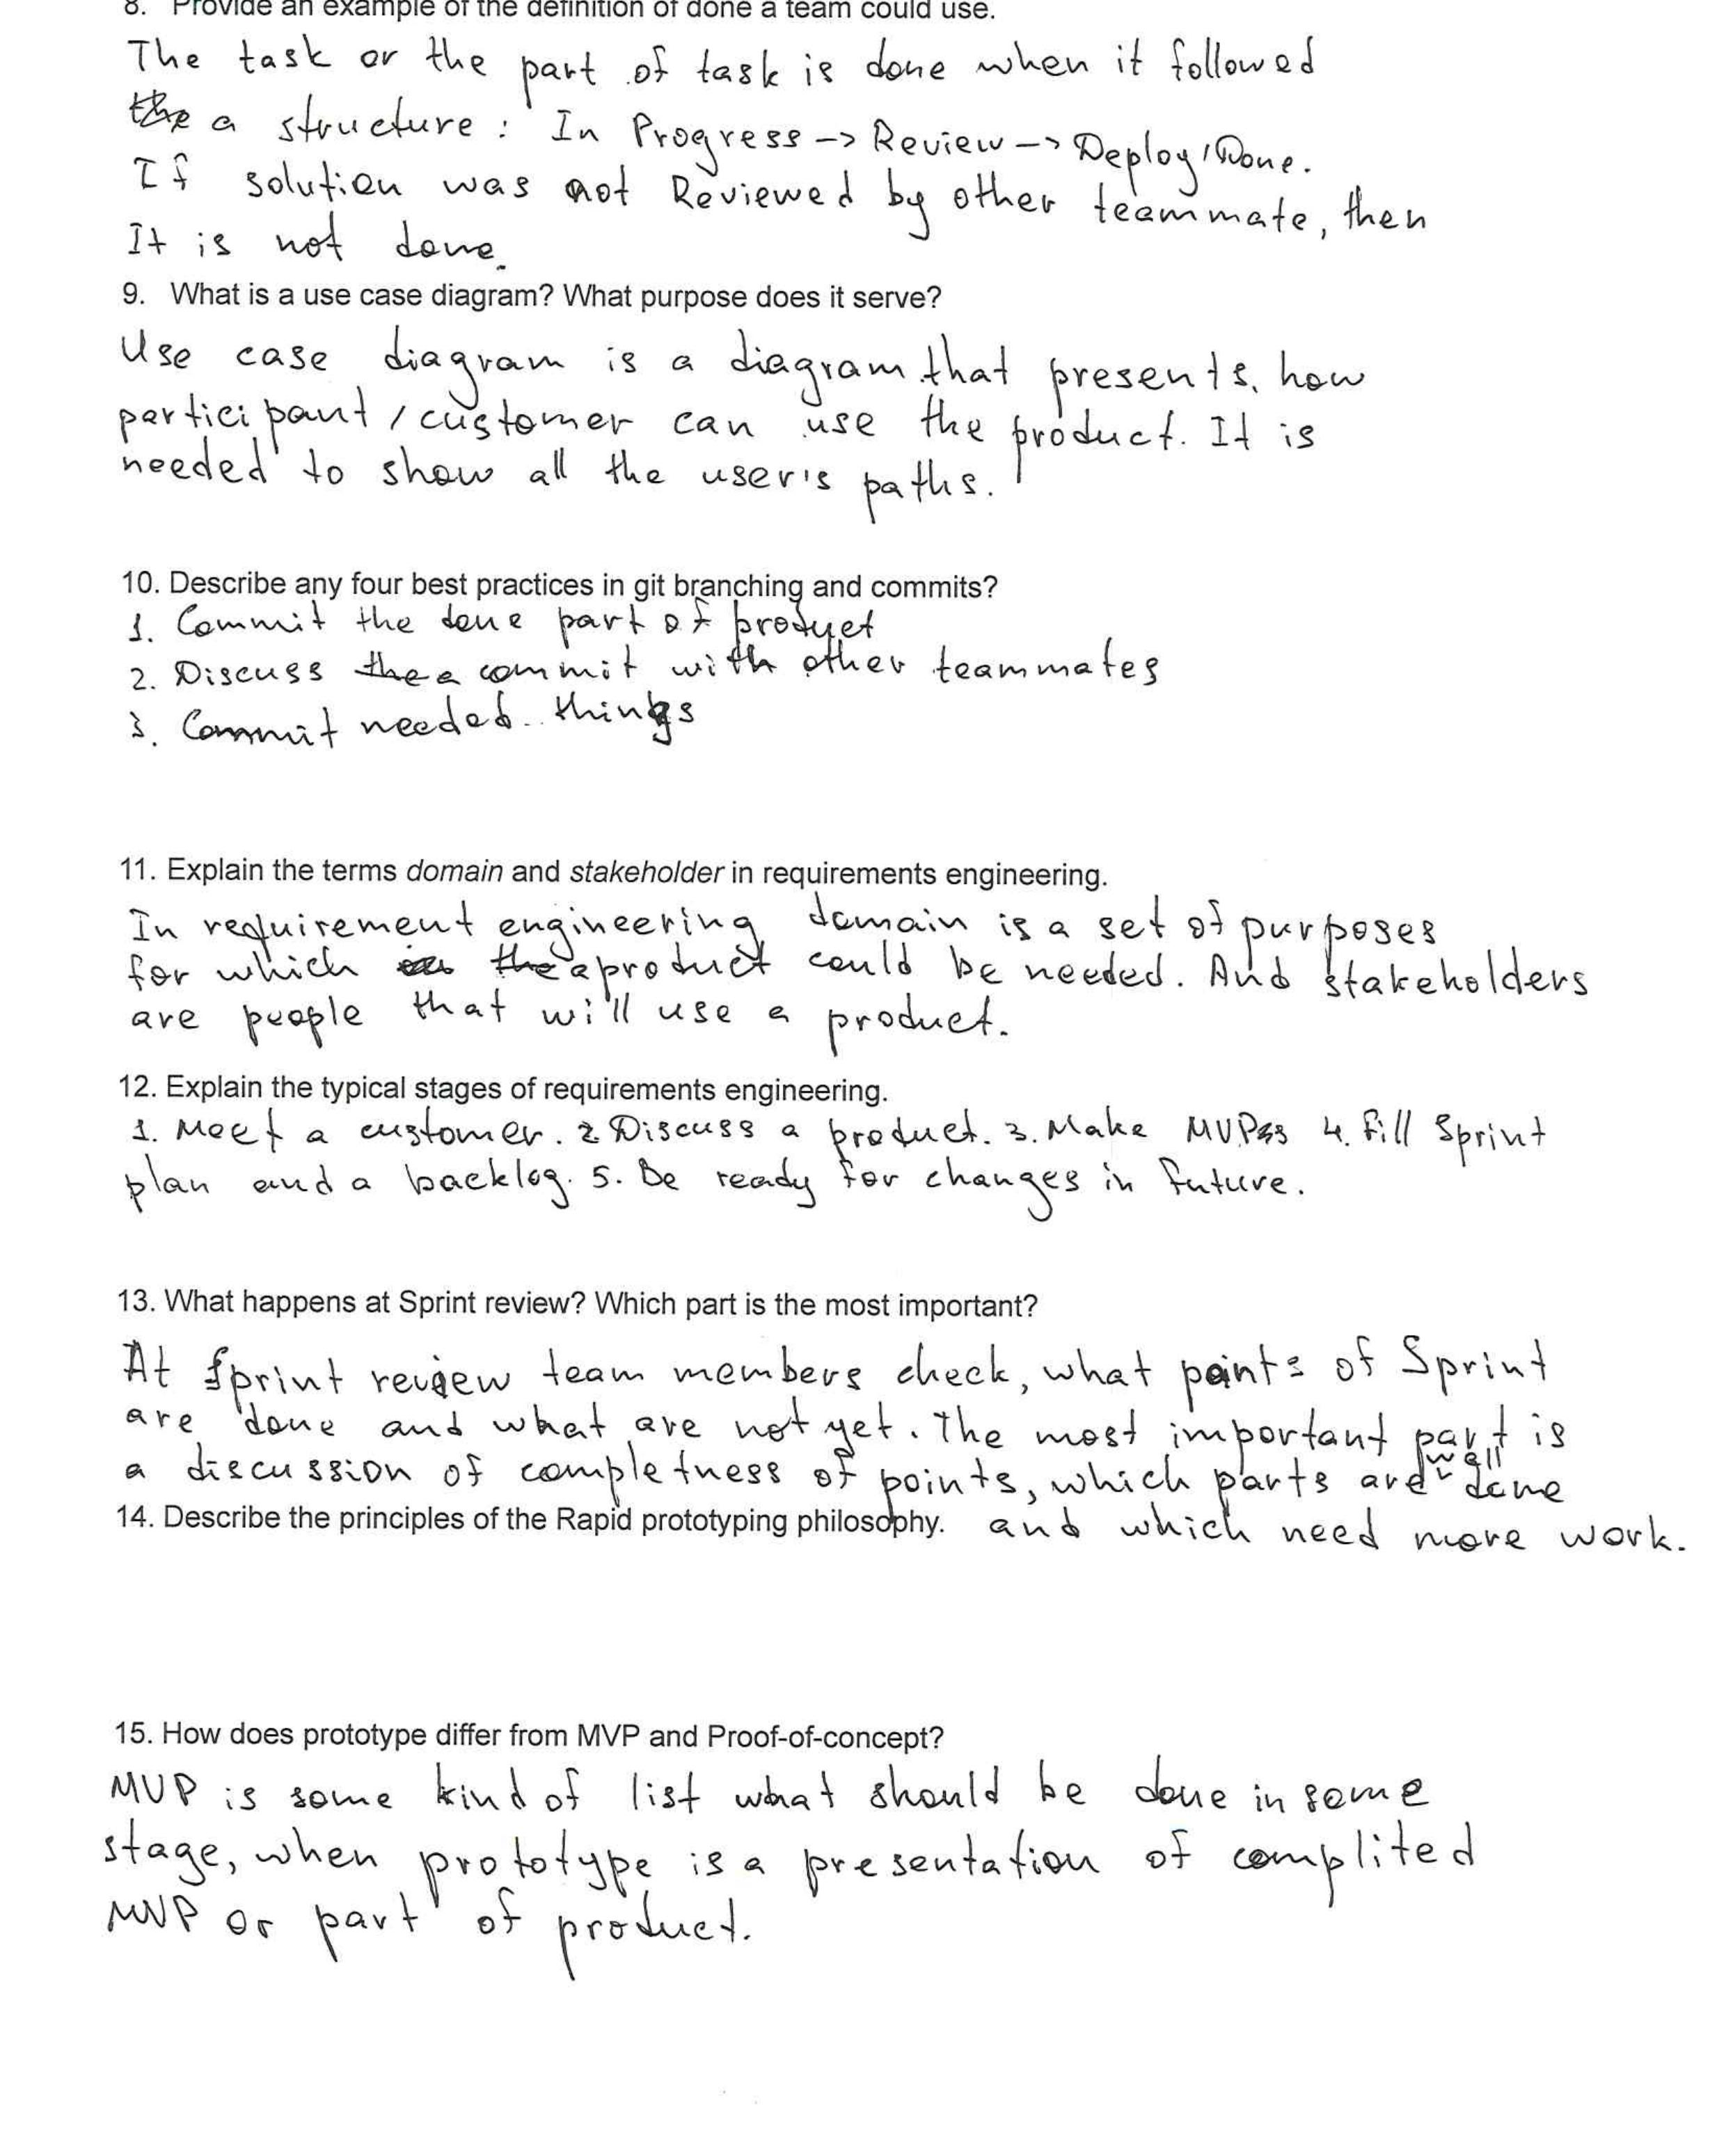 8. Provide an example of the definition of done a team could use.
The task or the part of task is done when it followed
the a structure: In Progress -> Review -> Deploy/Done.
If solution was not Reviewed by other teammate, then
It is not done.
9. What is a use case diagram? What purpose does it serve?
Use case diagram is a diagram that presents, how
participant/customer can use the product. It is
needed to show all the user's paths.
10. Describe any four best practices in git branching and commits?
1. Commit the done part of product
2. Discuss the a commit with other teammates
3. Commit needed things
11. Explain the terms domain and stakeholder in requirements engineering.
In requirement engineering domain is a set of purposes
for which the a product could be needed. And stakeholders
are people that will use a product.
12. Explain the typical stages of requirements engineering.
1. Meet a customer. 2. Discuss a product. 3. Make MVPs 4. Fill Sprint
plan and a backlog. 5. Be ready for changes in future.
13. What happens at Sprint review? Which part is the most important?
At Sprint review team members check, what points of Sprint
are done and what are not yet. The most important part is
a discussion of completness of points, which parts are well done
and which need more work.
14. Describe the principles of the Rapid prototyping philosophy.
15. How does prototype differ from MVP and Proof-of-concept?
MVP is some kind of list what should be done in some
stage, when prototype is a presentation of complited
MVP or part of product.